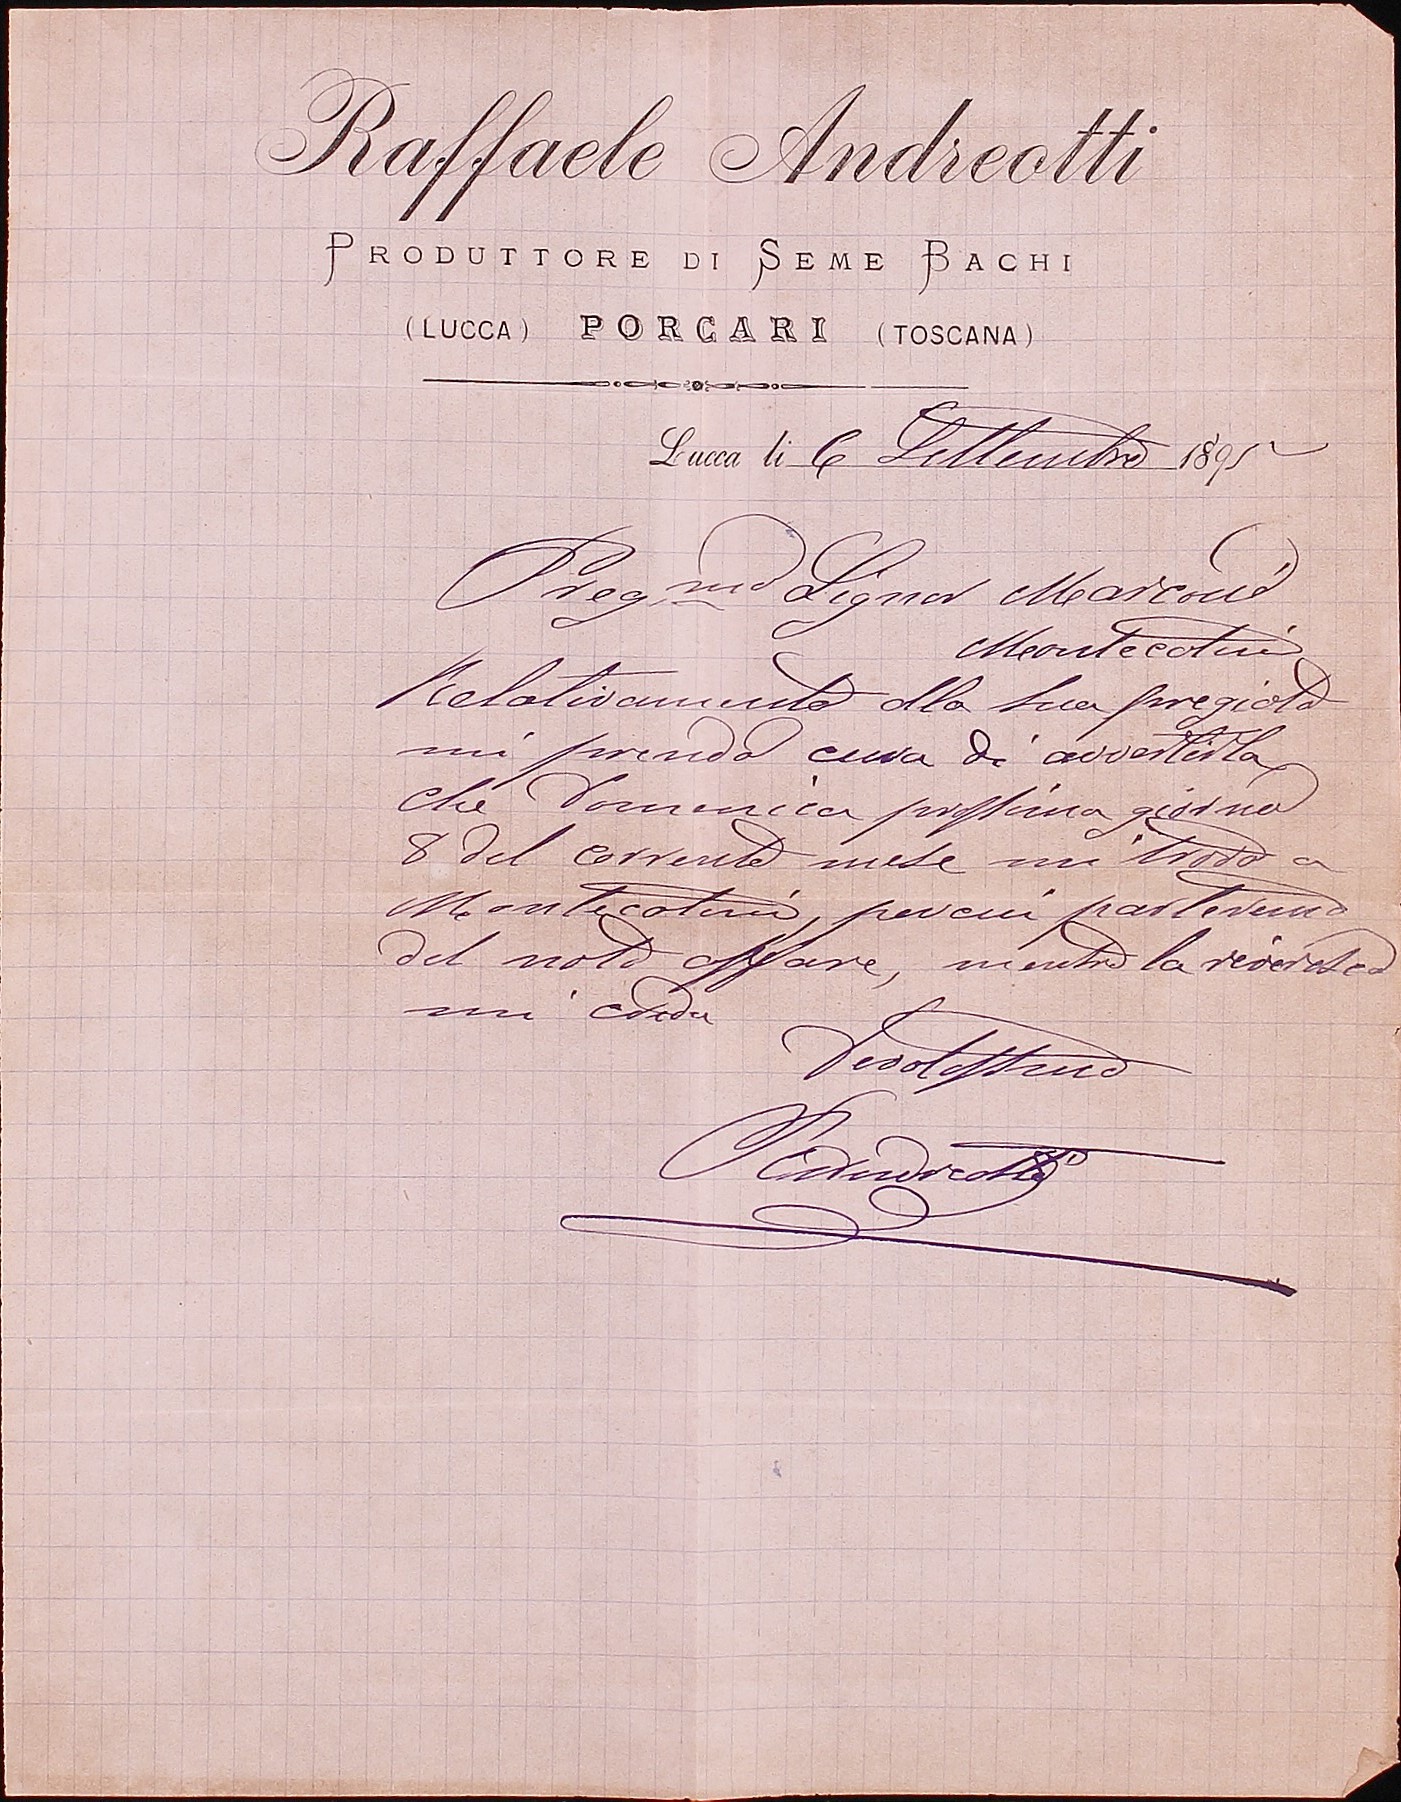 Raffaele Andreotti
PRODUTTORE DI SEME BACHI
(LUCCA) PORCARI (TOSCANA)
Lucca li 6 Settembre 1895
Preg.mo Signor Marconi
Montecatini
Relativamente alla sua pregiata
mi prendo cura di avvertirla
che Domenica prossima giorno
8 del corrente mese mi trovo a
Montecatini, percui parleremo
del noto affare, mentre la riverisco
mi creda
Devotissimo
RAndreotti